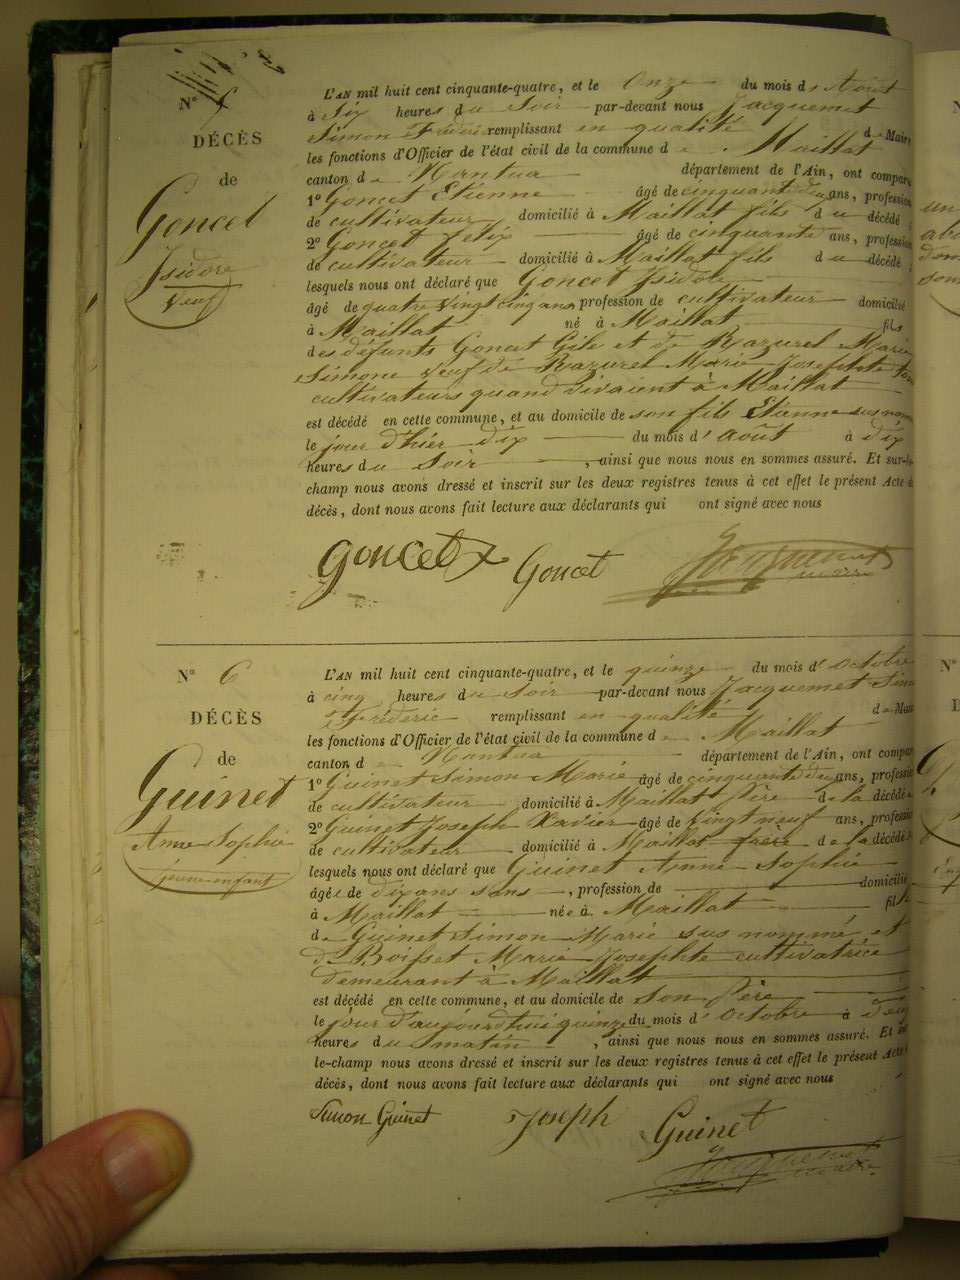 N° 5
DÉCÈS
de
Goncet
Isidore
veuf
L'AN mil huit cent cinquante-quatre, et le Onze du mois d'Août
à Six heures du Soir par-devant nous Jacquemet
Simon Fréderic remplissant en qualité de Maire
les fonctions d'Officier de l'état civil de la commune de Maillat
canton de Nantua département de l'Ain, ont comparu
1° Goncet Etienne âgé de cinquante deux ans, profession
de cultivateur domicilié à Maillat fils du décédé
2° Goncet Felix âgé de cinquante ans, profession
de cultivateur domicilié à Maillat fils du décédé
lesquels nous ont déclaré que Goncet Isidore
âgé de quatre vingt cinq ans profession de cultivateur domicilié
à Maillat né à Maillat fils
des défunts Goncet Gile et de Razurel Marie
Simone veuf de Razurel Marie Josephte tous
cultivateurs quand vivaient à Maillat
est décédé en cette commune, et au domicile de son fils Etienne sus nommé
le jour d'hier dix du mois d'août à dix
heures du Soir, ainsi que nous nous en sommes assuré. Et sur-le-
champ nous avons dressé et inscrit sur les deux registres tenus à cet effet le présent Acte de
décès, dont nous avons fait lecture aux déclarants qui ont signé avec nous
Goncet Goncet Jacquemet
maire
N° 6
DÉCÈS
de
Guinet
Anne Sophie
jeune enfant
L'AN mil huit cent cinquante-quatre, et le quinze du mois d'Octobre
à cinq heures du Soir par-devant nous Jacquemet Simon
Fréderic remplissant en qualité de Maire
les fonctions d'Officier de l'état civil de la commune de Maillat
canton de Nantua département de l'Ain, ont comparu
1° Guinet Simon Marie âgé de cinquante deux ans, profession
de cultivateur domicilié à Maillat Père de la décédée
2° Guinet Joseph Xavier âgé de vingt neuf ans, profession
de cultivateur domicilié à Maillat frère de la décédée
lesquels nous ont déclaré que Guinet Anne Sophie
âgée de dix ans sans, profession de domicilié
à Maillat née à Maillat fille
de Guinet Simon Marie sus nommé et
de Boisset Marie Josephte cultivatrice
demeurant à Maillat
est décédé en cette commune, et au domicile de son Père
le jour d'aujourd'hui quinze du mois d'Octobre à deux
heures du matin, ainsi que nous nous en sommes assuré. Et sur
le-champ nous avons dressé et inscrit sur les deux registres tenus à cet effet le présent Acte
décès, dont nous avons fait lecture aux déclarants qui ont signé avec nous
Simon Guinet Joseph Guinet
Jacquemet
maire